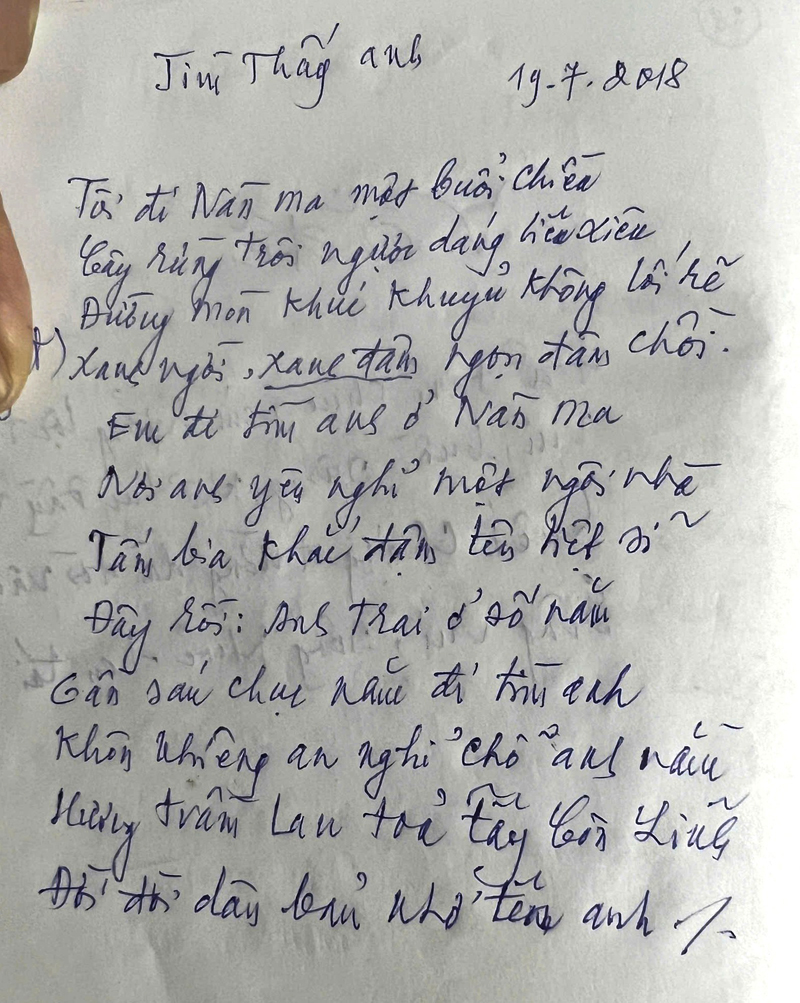 Tìm Thấy anh 19-7-2018
Tôi đi Nầm ma một buổi chiều
Cây rừng trôi ngược dáng liêu xiêu
Đường mòn khúc khuỷu không lối rẽ
Xanh ngời, xanh đẫm ngọn đâm chồi.
Em đi tìm anh ở Nầm ma
Nơi anh yên nghỉ một ngôi nhà
Tấm bia khắc đậm tên liệt sĩ
Đây rồi: Anh Trai ở số năm
Gần sáu chục năm đi tìm anh
Khôn thiêng an nghỉ chỗ anh nằm
Hương trầm Lan toả Tây Côn Lĩnh
Đời đời dân bản nhớ tên anh ./.